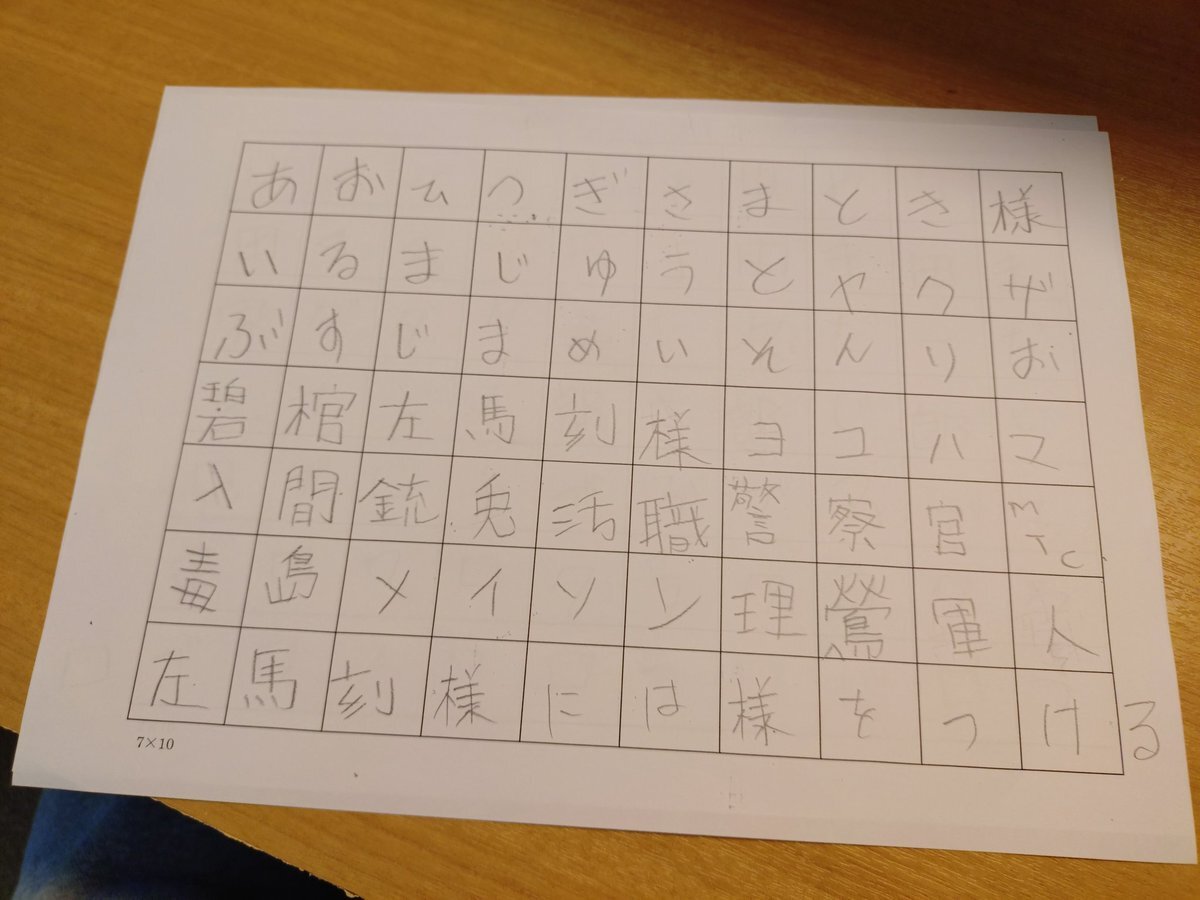 あおひつぎさまとき様
いるまじゅうとヤクザ
ぶすじまめいそんりお
碧棺左馬刻様ヨコハマ
入間銃兎活職警察官MTC
毒島メイソン理鶯軍人
左馬刻様には様をつける
7×10